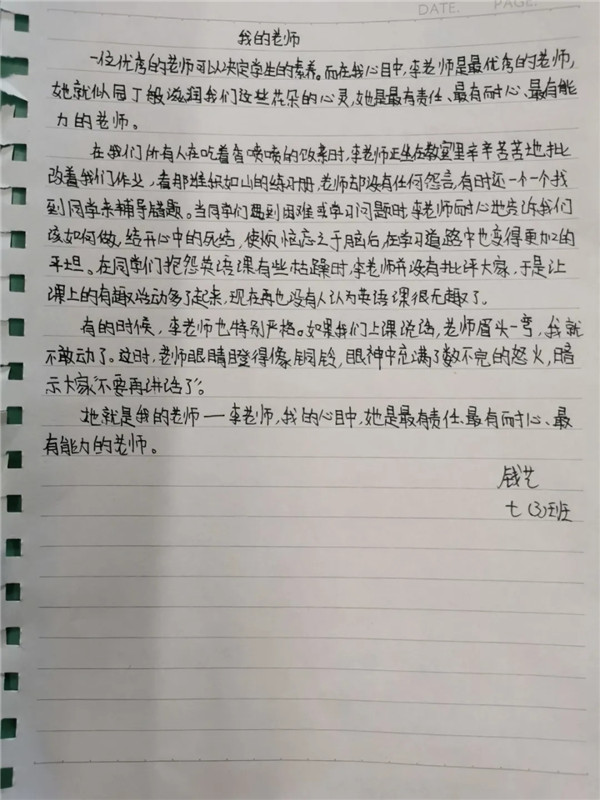 DATE. PAGE.
我的老师
一位优秀的老师可以决定学生的素养。而在我心目中,李老师是最优秀的老师,
她就似园丁般滋润我们这些花朵的心灵,她是最有责任、最有耐心、最有能
力的老师。
在我们所有人在吃着香喷喷的饭菜时,李老师正坐在教室里辛辛苦苦地批
改着我们作业,看那堆积如山的练习册,老师却没有任何怨言,有时还一个一个找
到同学来辅导错题。当同学们遇到困难或学习问题时,李老师耐心地告诉我们
该如何做,结开心中的死结,使烦恼忘之于脑后,在学习道路中也变得更加的
平坦。在同学们抱怨英语课有些枯躁时,李老师并没有批评大家,于是让
课上的有趣活动多了起来,现在再也没有人认为英语课很无趣了。
有的时候,李老师也特别严格。如果我们上课说话,老师眉头一弯,我就
不敢动了。这时,老师眼睛瞪得像铜铃,眼神中充满了数不完的怒火,暗
示大家“不要再讲话了”。
她就是我的老师——李老师,我的心目中,她是最有责任、最有耐心、最
有能力的老师。
钱艺
七(3)班